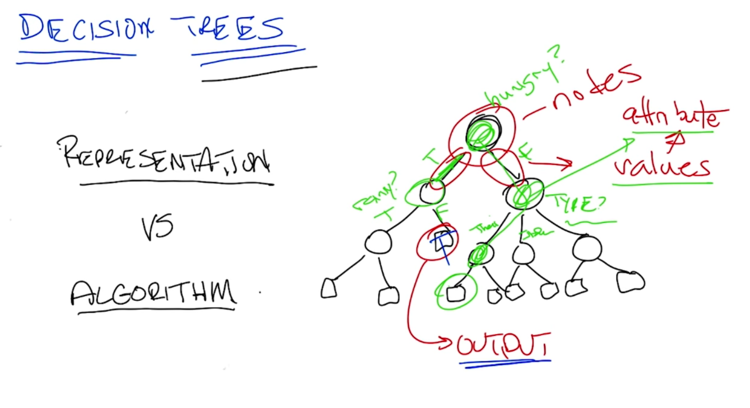 DECISION TREES
REPRESENTATION
VS
ALGORITHM
hungry?
nodes
T
F
attribute
values
rainy?
T
F
TYPE?
Thai
T
OUTPUT